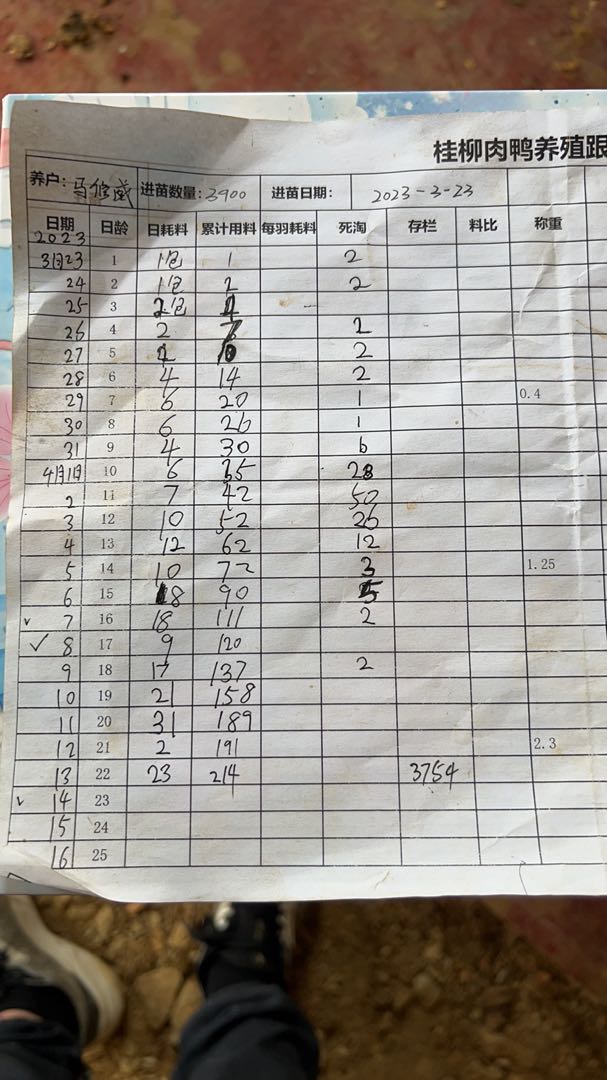 桂柳肉鸭养殖跟
养户: 马修威 进苗数量: 3900 进苗日期: 2023-3-23
日期 日龄 日耗料 累计用料 每羽耗料 死淘 存栏 料比 称重
2023
3月23 1 1包 1 2
24 2 1包 2 2
25 3 2包 4
26 4 2 7 2
27 5 10 2
28 6 4 14 2
29 7 6 20 1 0.4
30 8 6 26 1
31 9 4 30 6
4月1日 10 6 35 28
2 11 7 42 50
3 12 10 52 26
4 13 12 62 12
5 14 10 72 3 1.25
6 15 18 90 5
7 16 18 111 2
8 17 9 120
9 18 17 137 2
10 19 21 158
11 20 31 189
12 21 2 191 2.3
13 22 23 214 3754
14 23
15 24
16 25